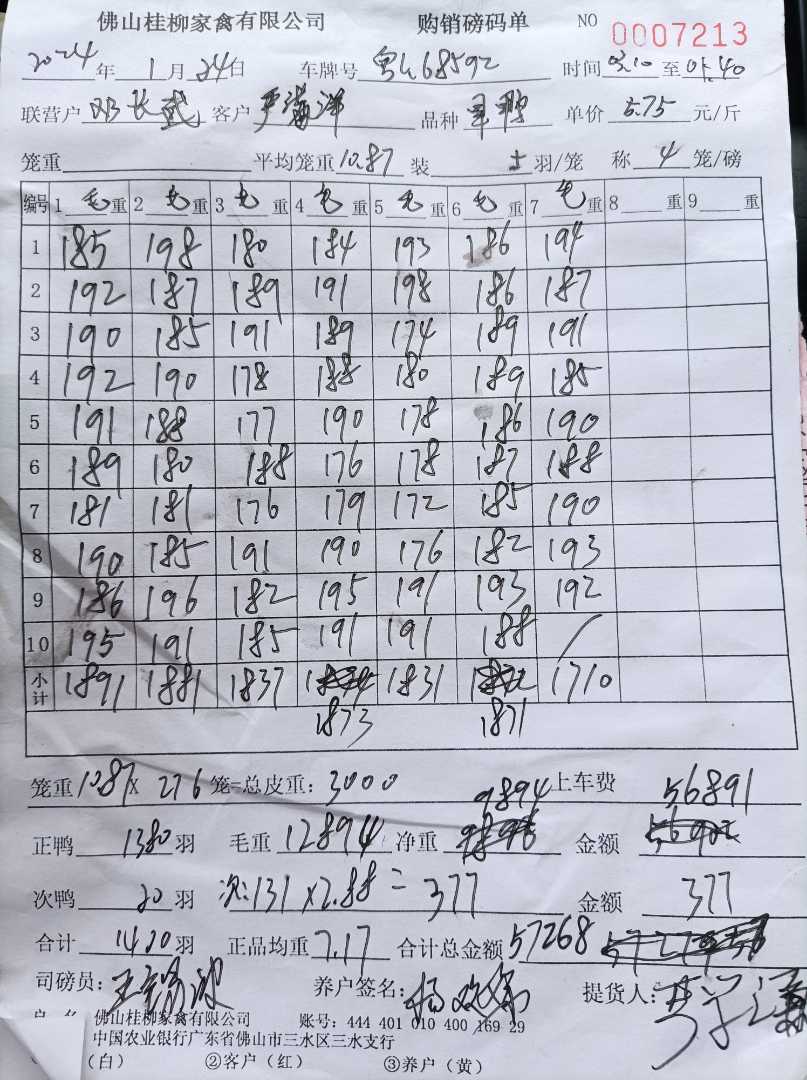 佛山桂柳家禽有限公司 购销磅码单 NO 0007213
2024年 1月 24日 车牌号 粤L68592 时间 03:10 至 05:40
联营户 邓长武 客户 严满洋 品种 单价 5.75 元/斤
笼重 平均笼重 10.87 装 5 羽/笼 称 4 笼/磅
编号 1 毛 重 2 毛 重 3 毛 重 4 毛 重 5 毛 重 6 毛 重 7 毛 重 8 重 9 重
1 185 198 180 184 193 186 194
2 192 187 189 191 198 186 187
3 190 185 191 189 174 189 191
4 192 190 178 188 180 189 185
5 191 188 177 190 178 186 190
6 189 180 188 176 178 187 188
7 181 181 176 179 172 185 190
8 190 185 191 190 176 182 193
9 186 196 182 195 191 193 192
10 195 191 185 191 191 188 /
小计 1891 1881 1837 1831 1710
1873 1871
笼重 10.87 X 276 笼=总皮重: 3000 9894 上车费 56891
正鸭 1380 羽 毛重 12894 净重 金额
次鸭 20 羽 次:131 X 2.88 = 377 金额 377
合计 1400 羽 正品均重 7.17 合计总金额 57268
司磅员: 养户签名: 提货人:
佛山桂柳家禽有限公司 账号: 444 401 010 400 169 29
中国农业银行广东省佛山市三水区三水支行
(白) ②客户(红) ③养户(黄)